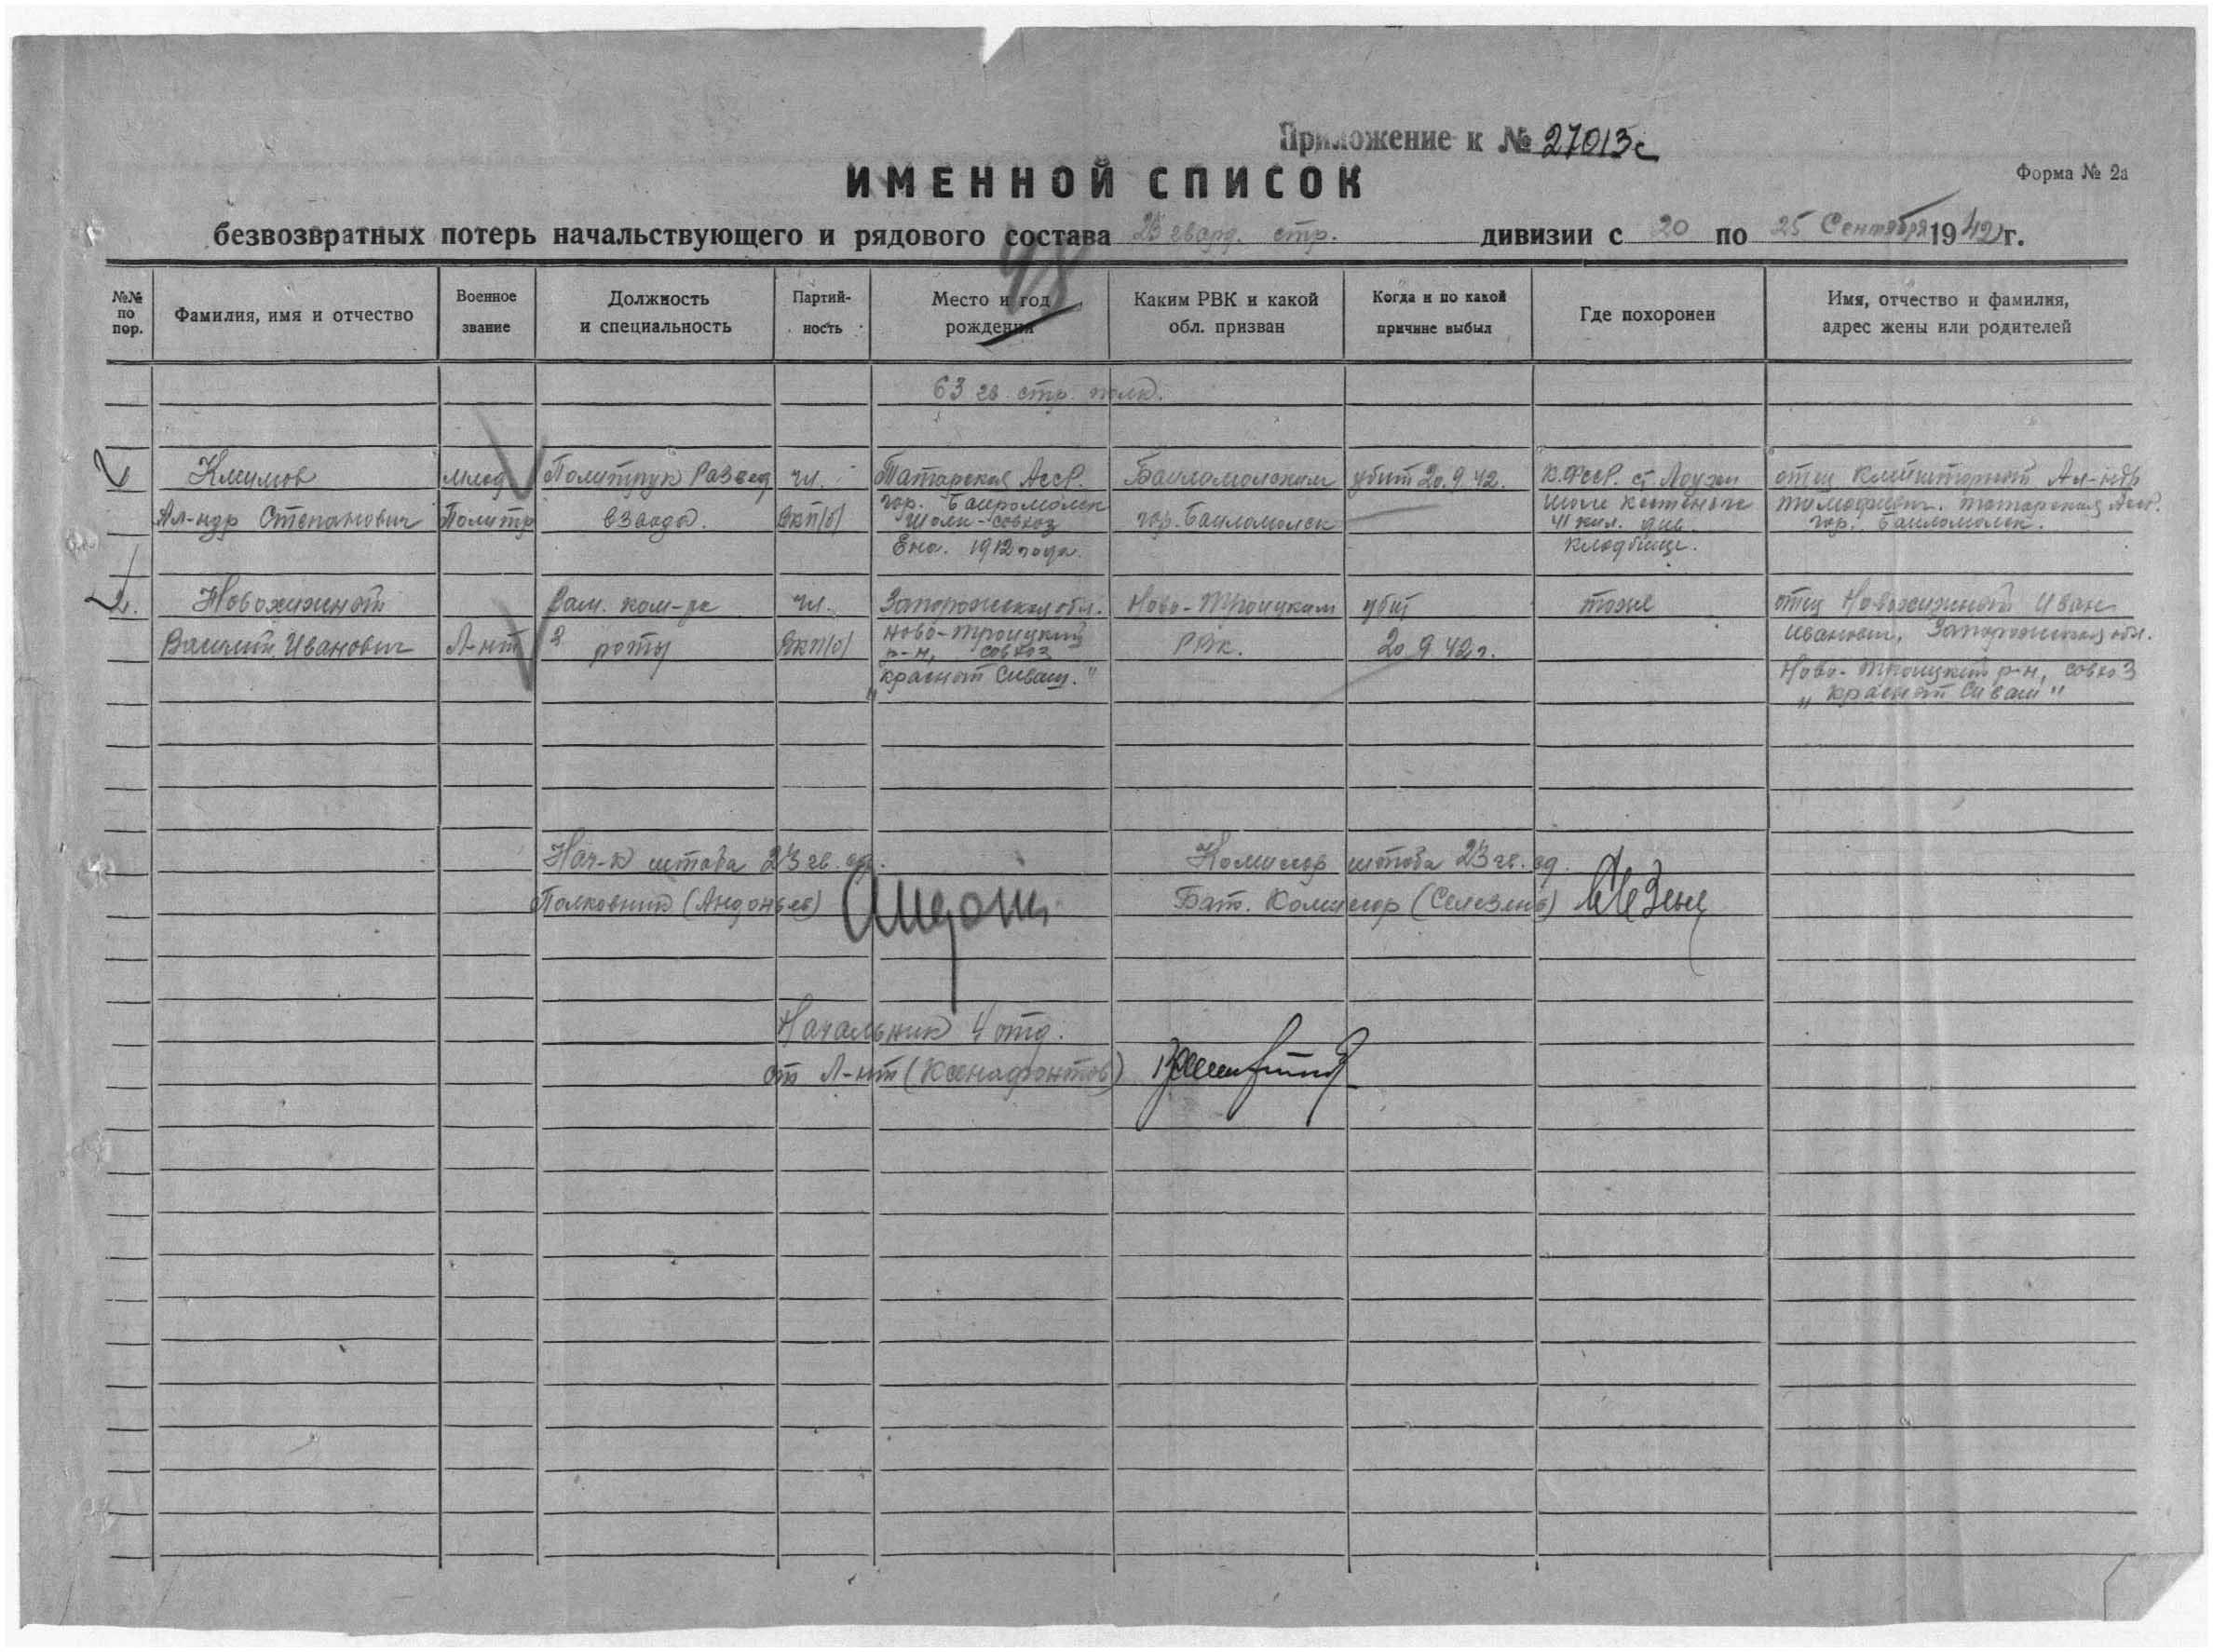 Приложение к № 27013с
ИМЕННОЙ СПИСОК
Форма № 2а
безвозвратных потерь начальствующего и рядового состава 23 гвард. стр. дивизии с 20 по 25 Сентября 1942 г.
48
№№ по пор.
Фамилия, имя и отчество
Военное звание
Должность и специальность
Партий- ность
Место и год рождения
Каким РВК и какой обл. призван
Когда и по какой причине выбыл
Где похоронен
Имя, отчество и фамилия, адрес жены или родителей
63 гв. стр. полк.
Климов млад Политрук Развед чл. Татарская Асср. убит 20.9.42. К.Фсср. ст. Лоухи отец Ал-ндр
Ал-ндр Степанович Политр взвода. Вкп(б) гор. гор. 41 кил. див. Татарская Асср.
совхоз гор.
1912 года. кладбище.
2. Новохижний Зам. ком-ра чл. Запорожская обл. Ново-Троицким убит тоже отец Новохижний Иван
Василий Иванович Л-нт роты Вкп(б) Ново-Троицкий РВК. 20.9.42г. Иванович, Запорожская обл.
р-н, совхоз Ново-Троицкий р-н, совхоз
"Красный Сиваш." "Красный Сиваш"
Нач-к штаба 23 гв. сд. Комиссар штаба 23 гв. сд.
Полковник (Андоньев) Бат. Комиссар (Селезнев)
Начальник 4 отд.
ст Л-нт (Ксенафонтов)